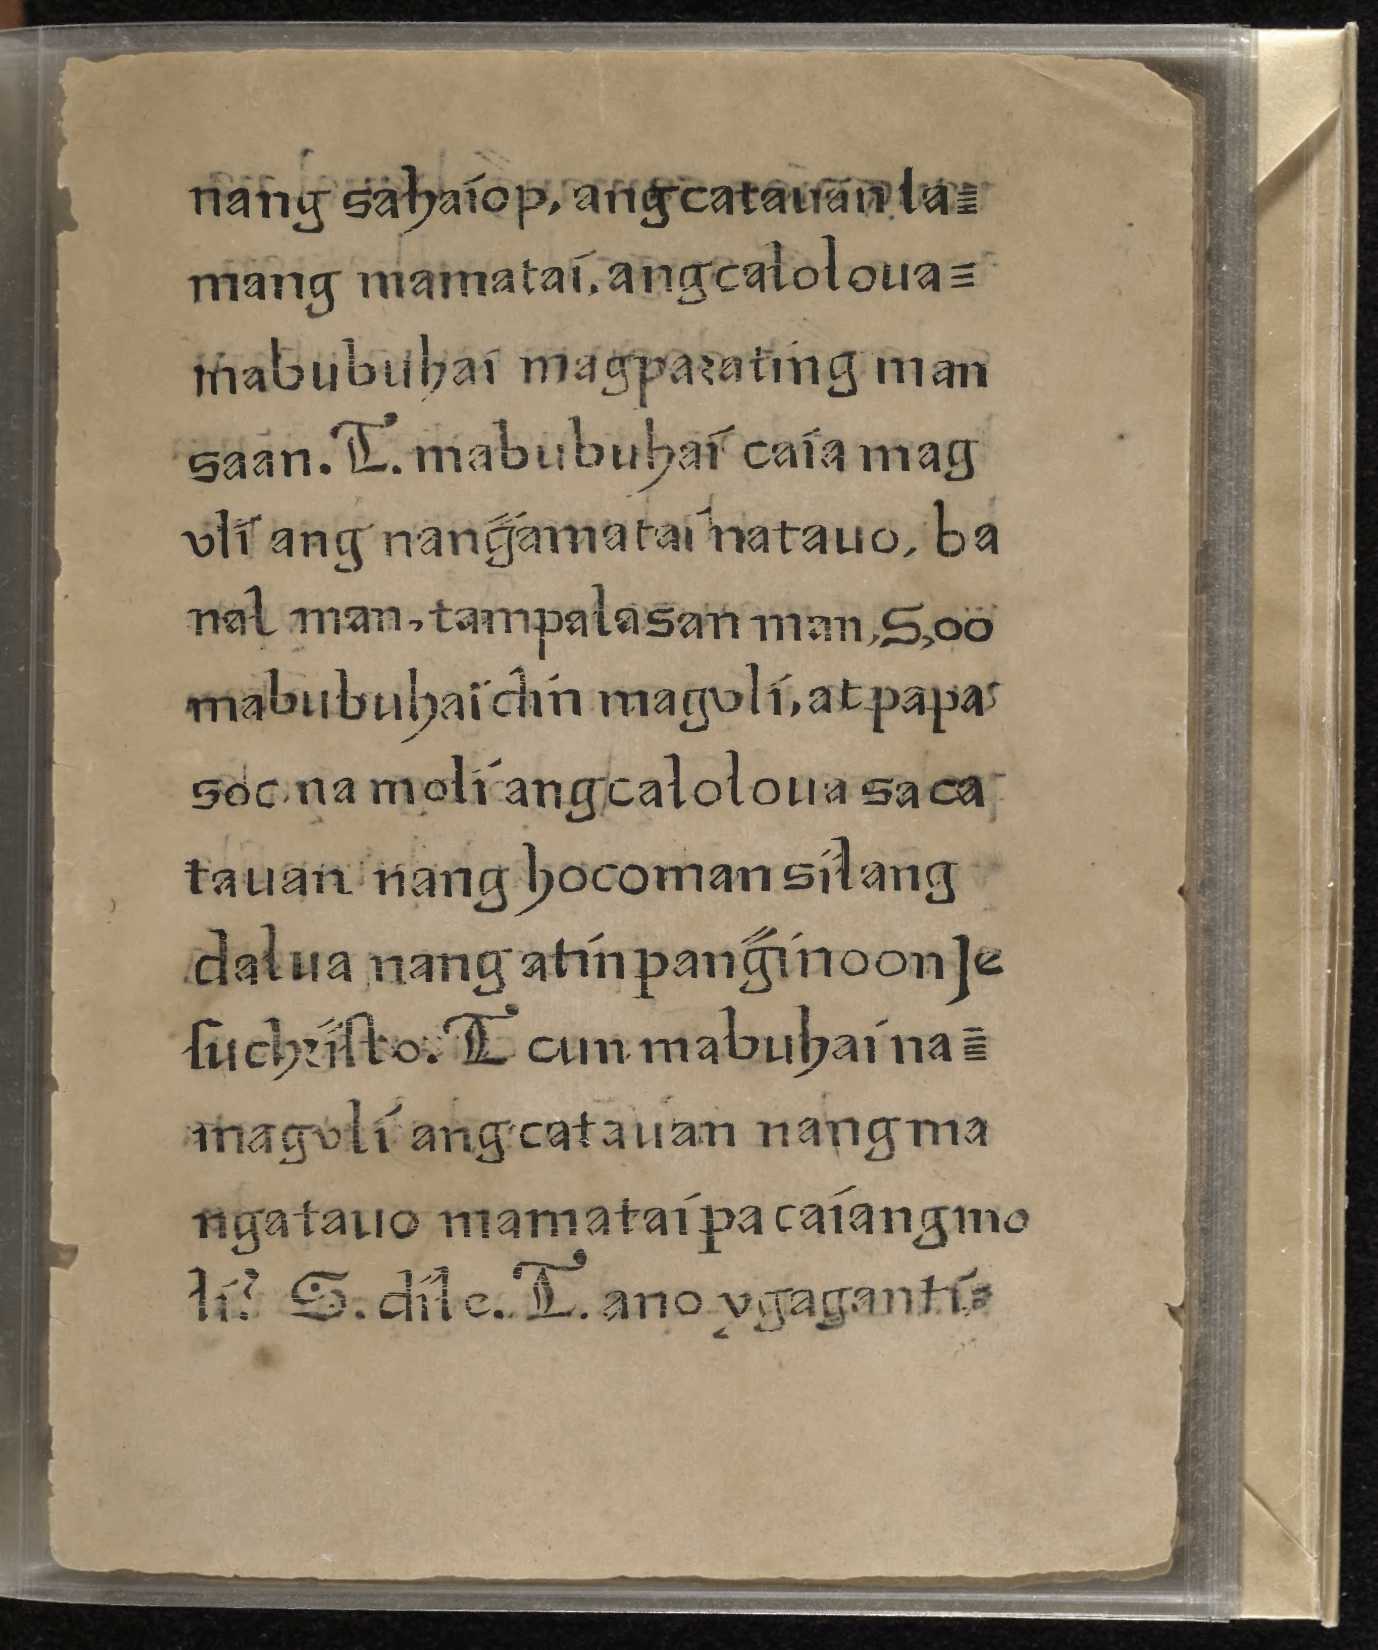 nang sahaíop, ang catauan la=
mang mamataí, ang caloloua=
mabubuhaí magparating man
saan. T. mabubuhaí caía mag
vlí ang nang̃amataí na tauo, ba
nal man, tampalasan man, S, oö
mabubuhaï dín magvlí, at papa
soc na molí ang caloloua sa ca
tauan nang hocoman sílang
dalua nang atín pang̃ínoon Je
ſuchríſto. T cun mabuhaí na=
magvlí ang catauan nang ma
nga tauo mamataí pa caíang mo
lí? S. díle. T. ano ygagantí=